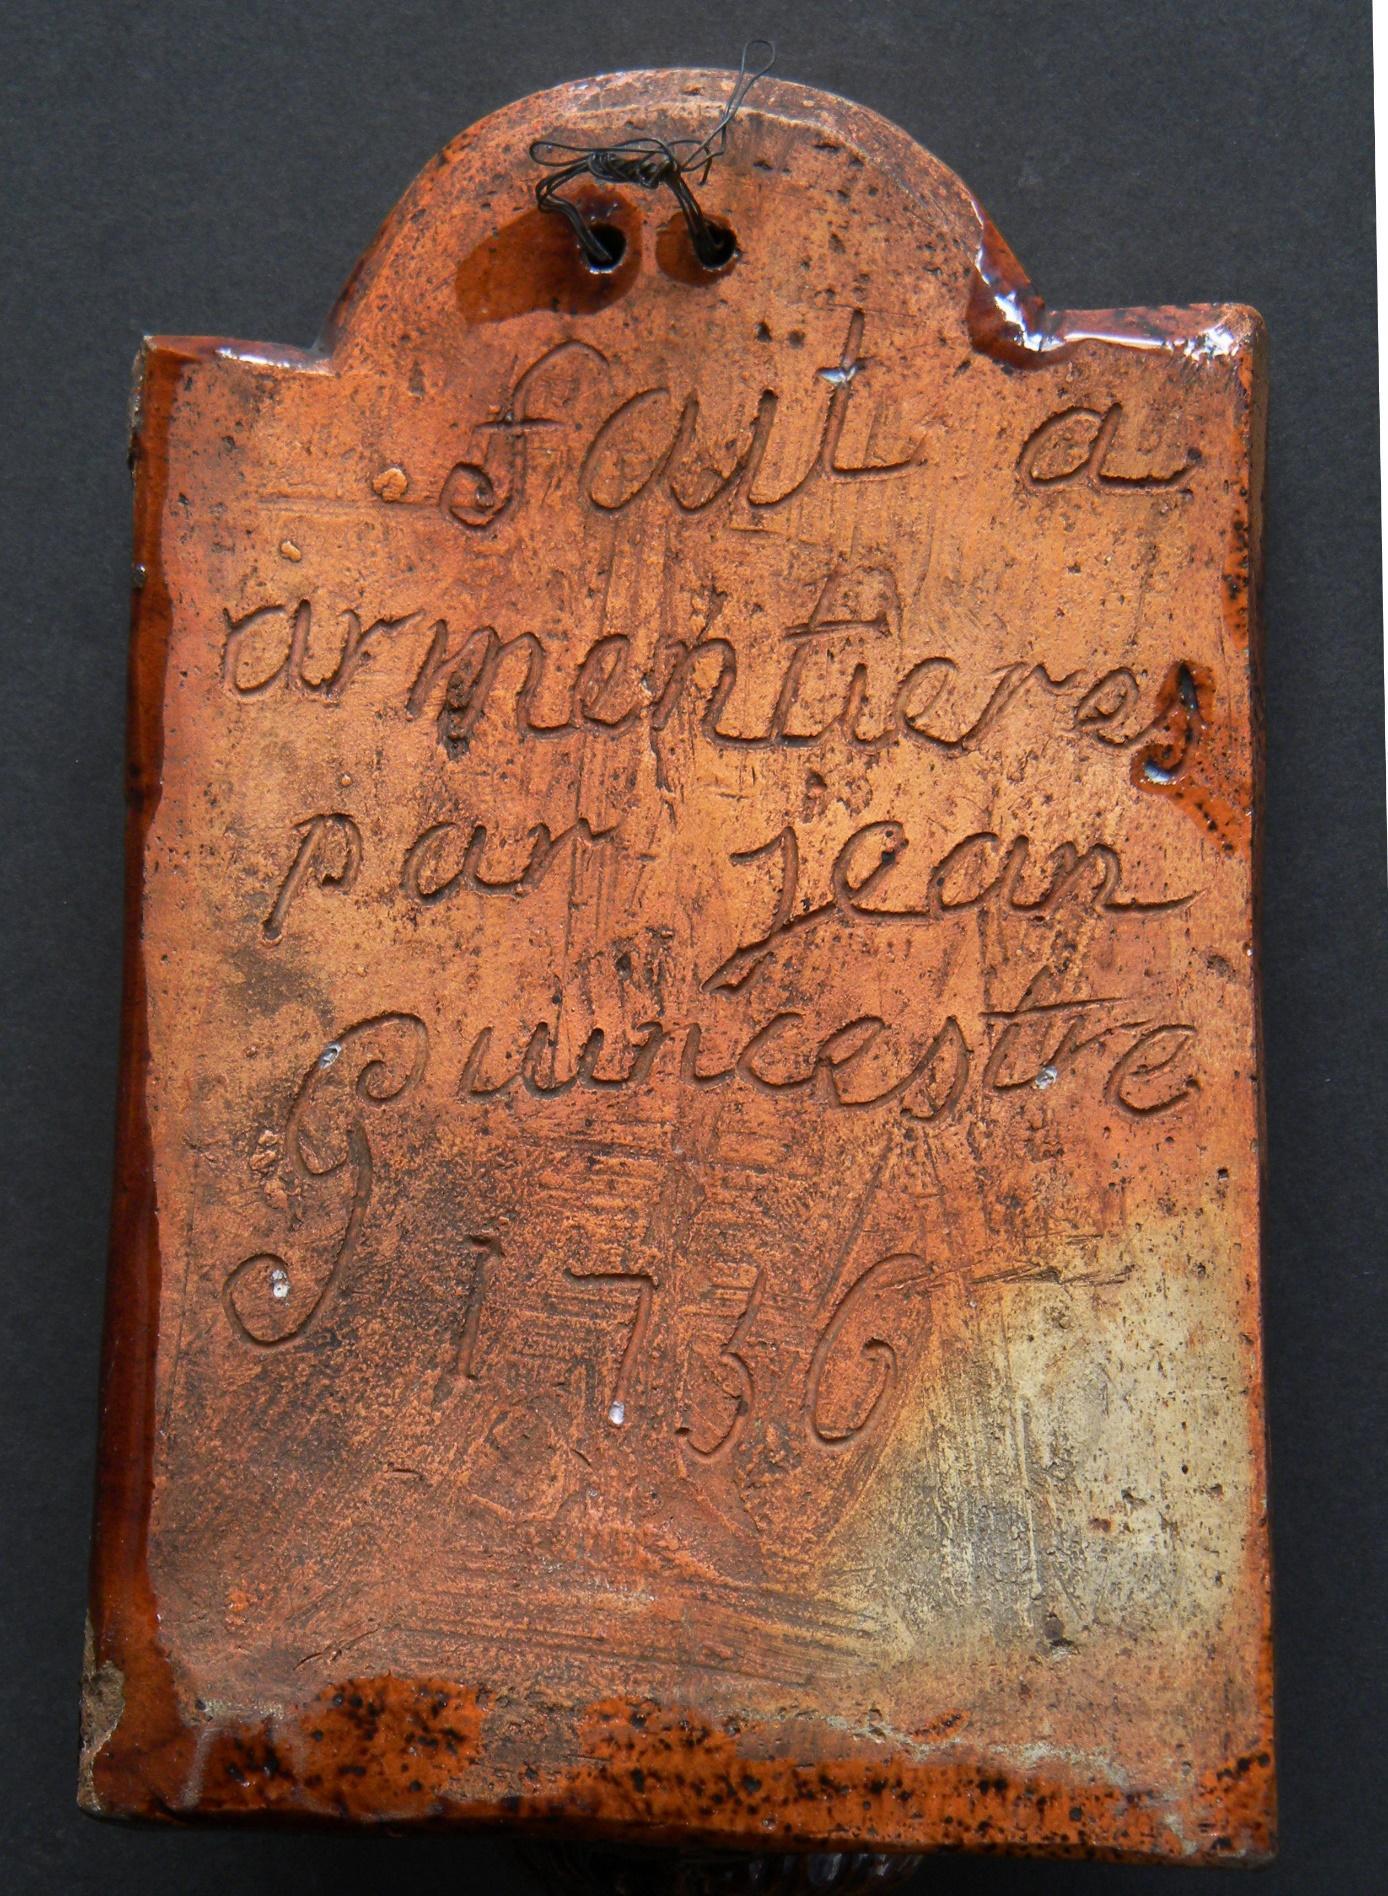 fait a
armentieres
par jean
Quincestre
1736